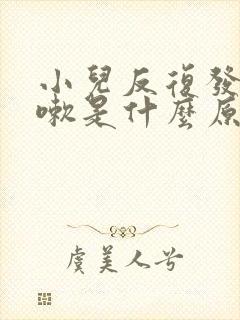 小兒反復發
嗽是什麼原
虞美人兮